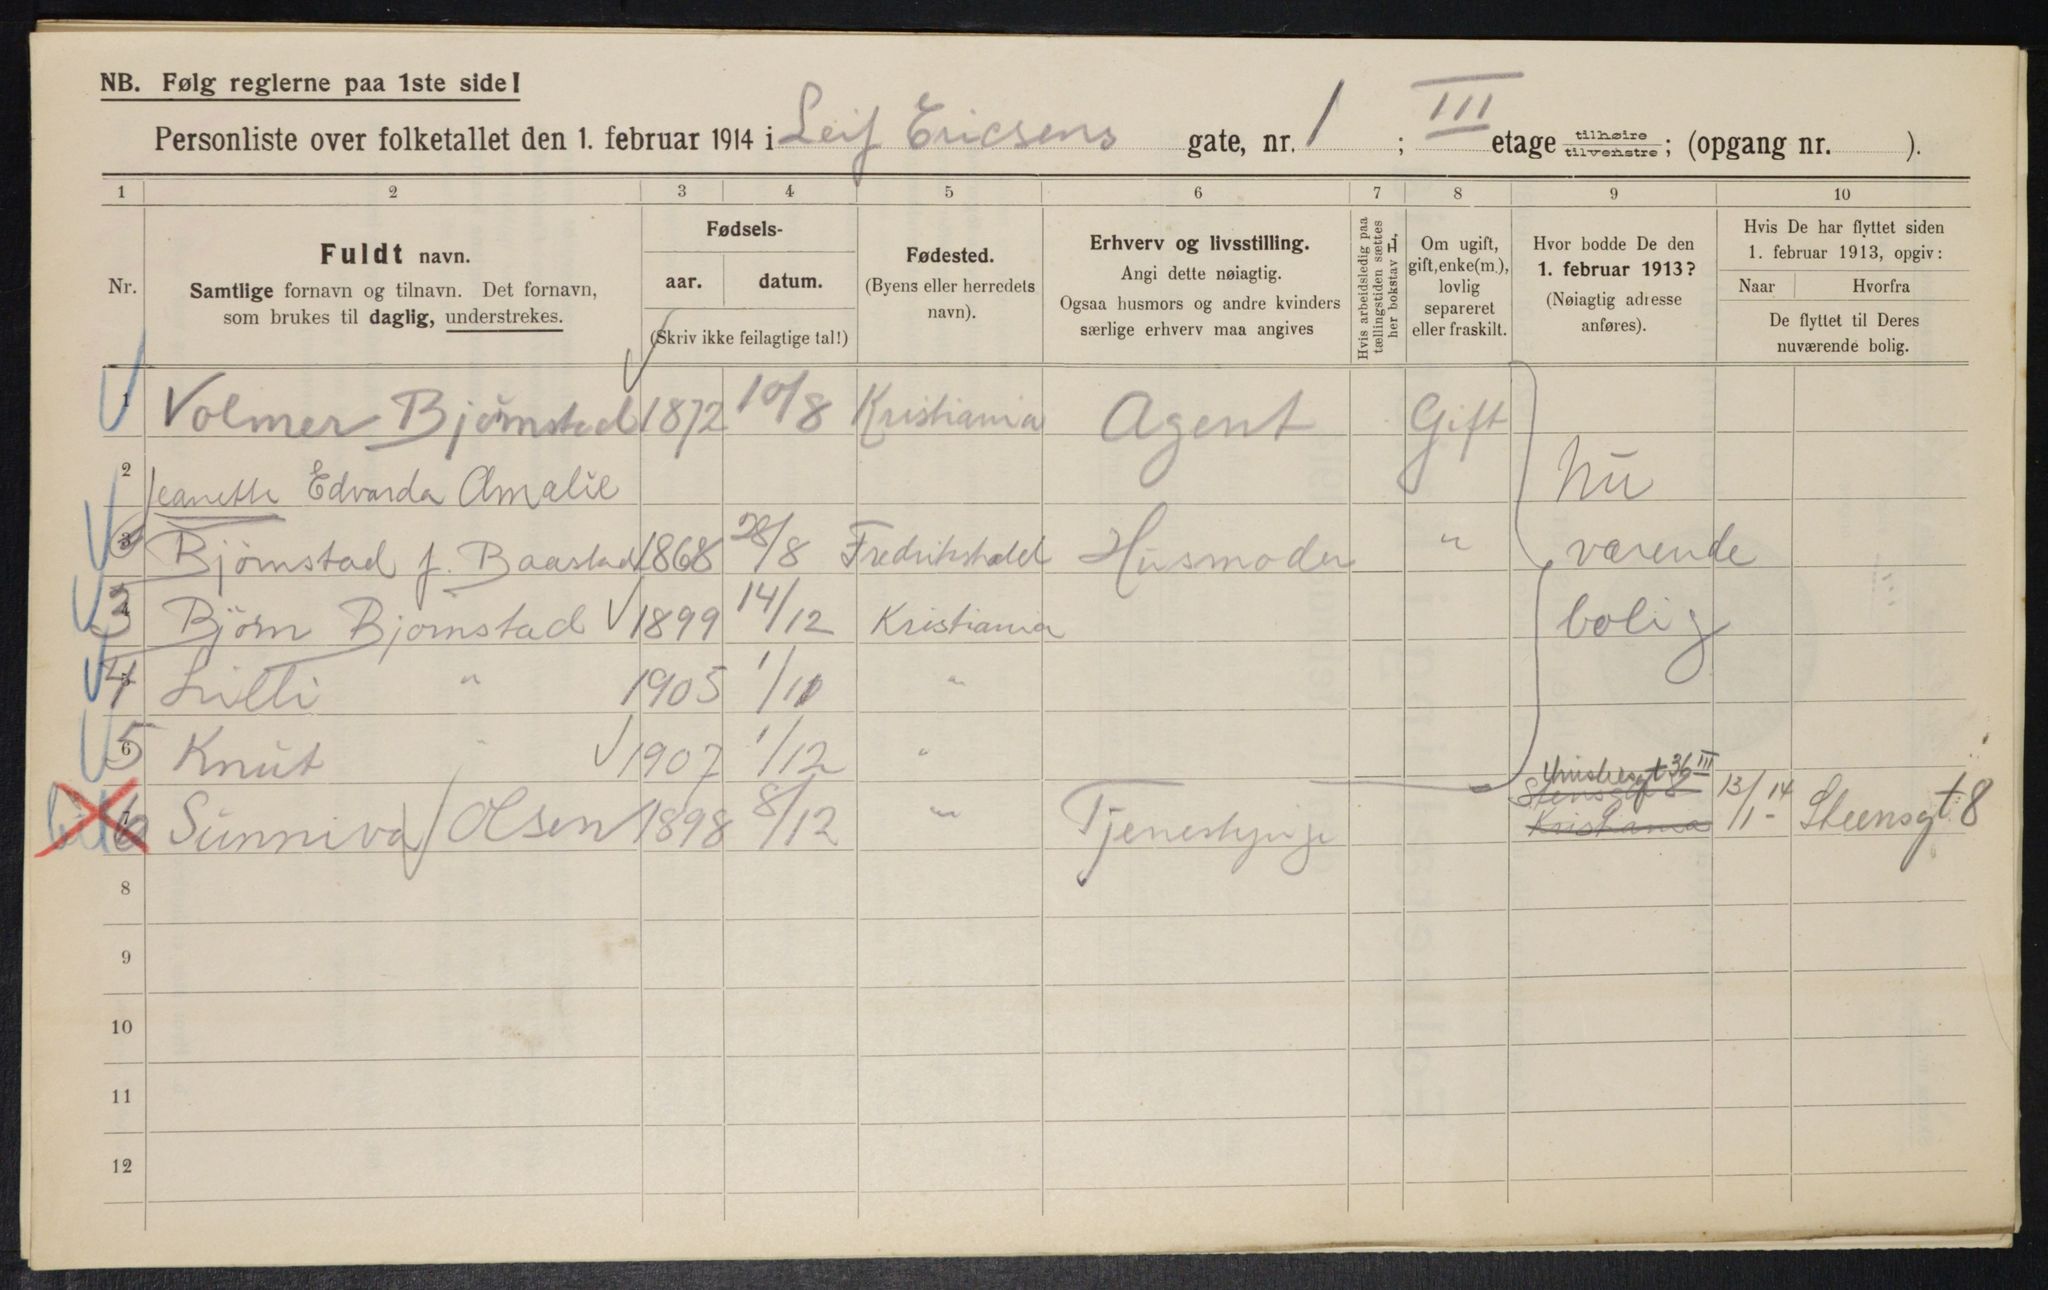 NB. Følg reglerne paa 1ste side!
Personliste over folketallet den 1. februar 1914 i Leif Ericsens gate, nr. 1 ; III etage tilhøire tilvenstre; (opgang nr. ).
1 2 3 4 5 6 7 8 9 10
Nr.
Fuldt navn.
Samtlige fornavn og tilnavn. Det fornavn,
som brukes til daglig, understrekes.
Fødsels-
aar. datum.
(Skriv ikke feilagtige tal!)
Fødested.
(Byens eller herredets
navn).
Erhverv og livsstilling.
Angi dette nøiagtig.
Ogsaa husmors og andre kvinders
særlige erhverv maa angives
Hvis arbeidsledig paa
tællingstiden sættes
her bokstav L.
Om ugift,
gift, enke(m.),
lovlig
separeret
eller fraskilt.
Hvor bodde De den
1. februar 1913?
(Nøiagtig adresse
anføres).
Hvis De har flyttet siden
1. februar 1913, opgiv:
Naar Hvorfra
De flyttet til Deres
nuværende bolig.
1 Volmer Bjørnstad 1872 10/8 Kristiania Agent Gift
2 Jeanette Edvarda Amalie Nu
3 Bjørnstad f. Baastad 1868 28/8 Fredrikshald Husmoder " værende
4 3 Bjørn Bjørnstad 1899 14/12 Kristiania bolig
5 4 Lilli " 1905 1/11 "
6 5 Knut " 1907 1/12 "
36 III
Stensgt 8
7 6 Sunniva Olsen 1898 8/12 " Tjenestepige Kristiania 13/1-14 Steensgt 8
8
9
10
11
12